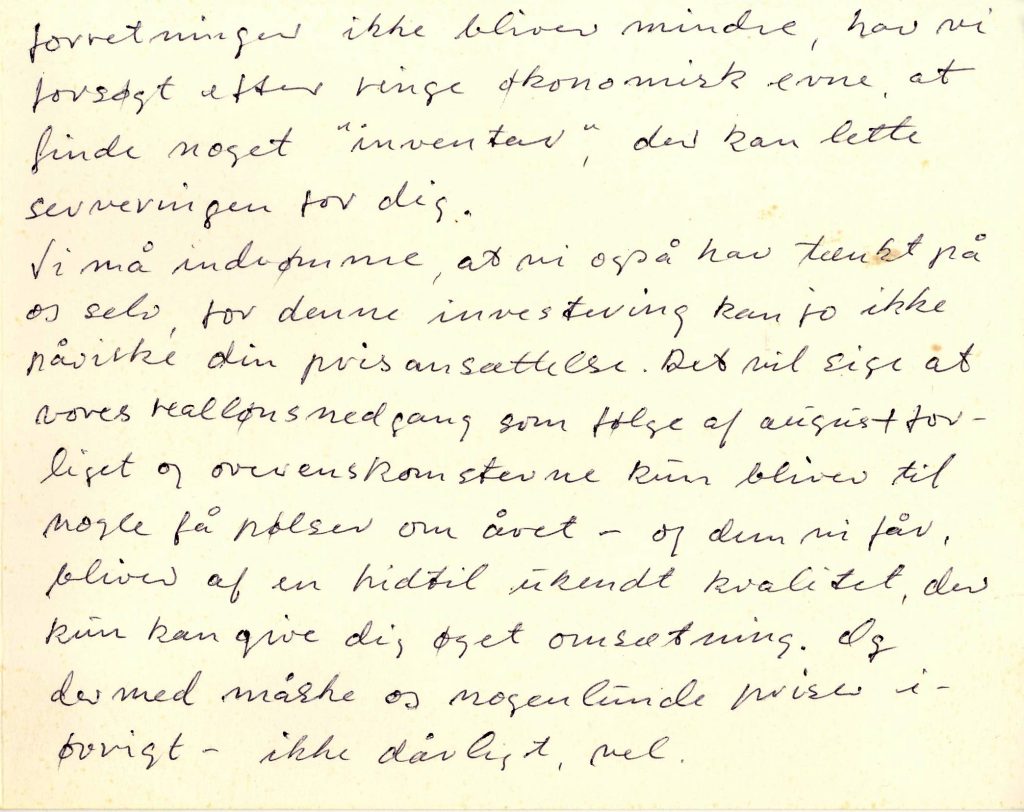 forretninger ikke bliver mindre, har vi
forsøgt efter ringe økonomisk evne, at
finde noget "inventar", der kan lette
serveringen for dig.
Vi må indrømme, at vi også har tænkt på
os selv, for denne investering kan jo ikke
påvirke din prisansættelse. Det vil sige at
vores reallønsnedgang som følge af augustfor-
liget og overenskomsterne kun bliver til
nogle få pølser om året - og dem vi får,
bliver af en hidtil ukendt kvalitet, der
kun kan give dig øget omsætning. Og
dermed måske os nogenlunde priser i-
øvrigt - ikke dårligt, vel.